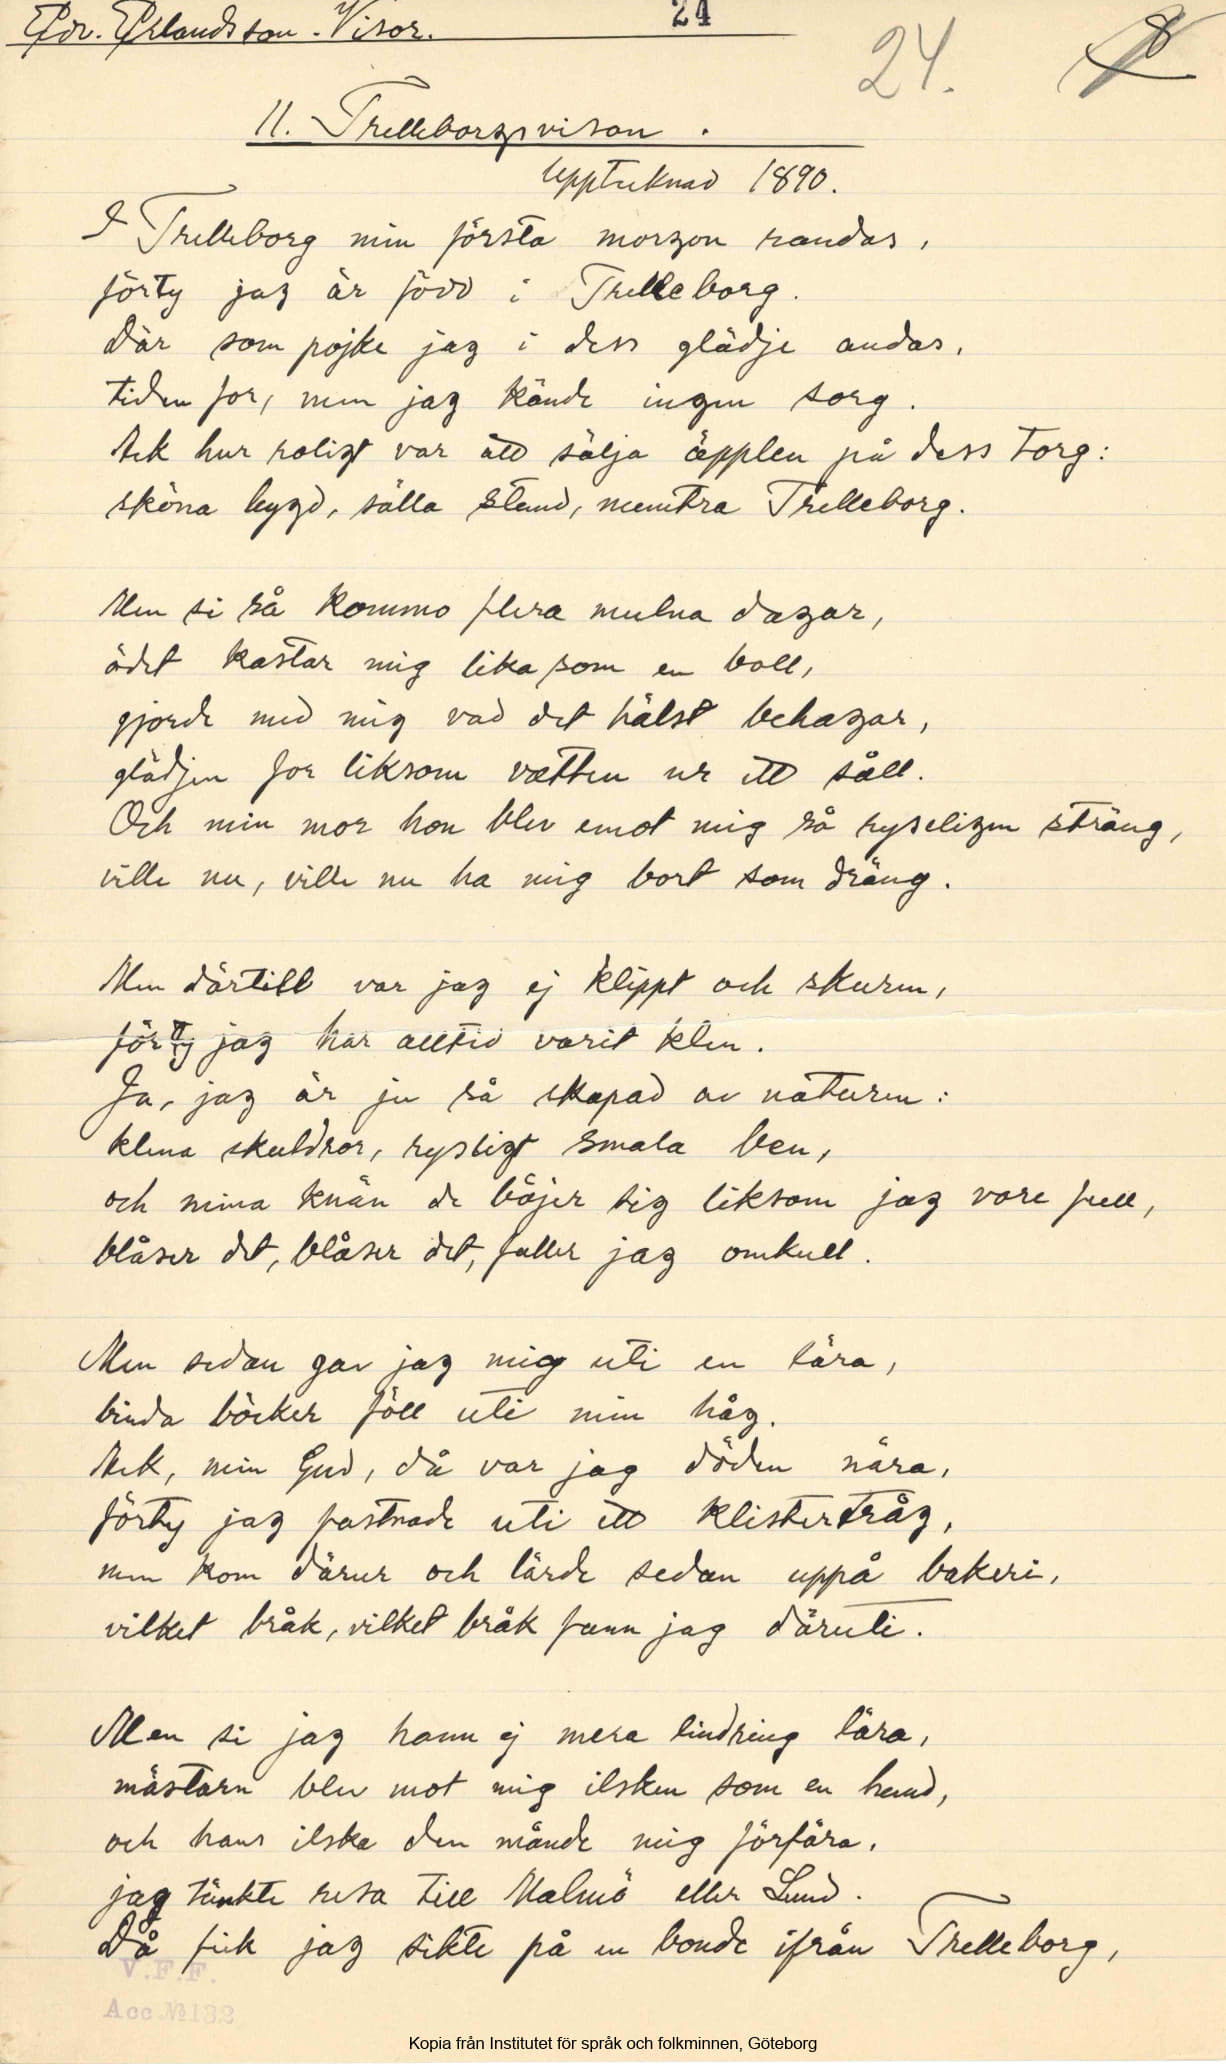 Edv. Erlandsson. Visor.
24
24.
8
11. Trelleborgsvisan.
Upptecknad 1890.
I Trelleborg min första morgon randas,
förty jag är född i Trelleborg.
Där som pojke jag i dess glädje andas,
tiden for, men jag kände ingen sorg.
Ack hur roligt var att sälja äpplen på dess torg:
sköna bygd, sälla stund, muntra Trelleborg.
Men si så kommo flera mulna dagar,
ödet kastar mig lika som en boll,
gjorde med mig vad det hälst behagar,
glädjen for liksom vatten ur ett såll.
Och min mor hon blev emot mig så ryseligen sträng,
ville nu, ville nu ha mig bort som dräng.
Men därtill var jag ej klippt och skuren,
förty jag har alltid varit klen.
Ja, jag är ju så skapad av naturen:
klena skuldror, rysligt smala ben,
och mina knän de böjer sig liksom jag vore full,
blåser det, blåser det, faller jag omkull.
Men sedan gav jag mig uti en lära,
binda böcker föll uti min håg.
Ack, min Gud, då var jag döden nära,
förty jag fastnade uti ett klistertråg,
men kom därur och lärde sedan uppå bakeri,
vilket bråk, vilket bråk fann jag däruti.
Men si jag hann ej mera lindring lära,
mästarn blev mot mig ilsken som en hund,
och hans ilska den månde mig förfära,
jag tänkte resa till Malmö eller Lund.
Då fick jag sikte på en bonde ifrån Trelleborg,
V.F.F.
Acc №132
Kopia från Institutet för språk och folkminnen, Göteborg